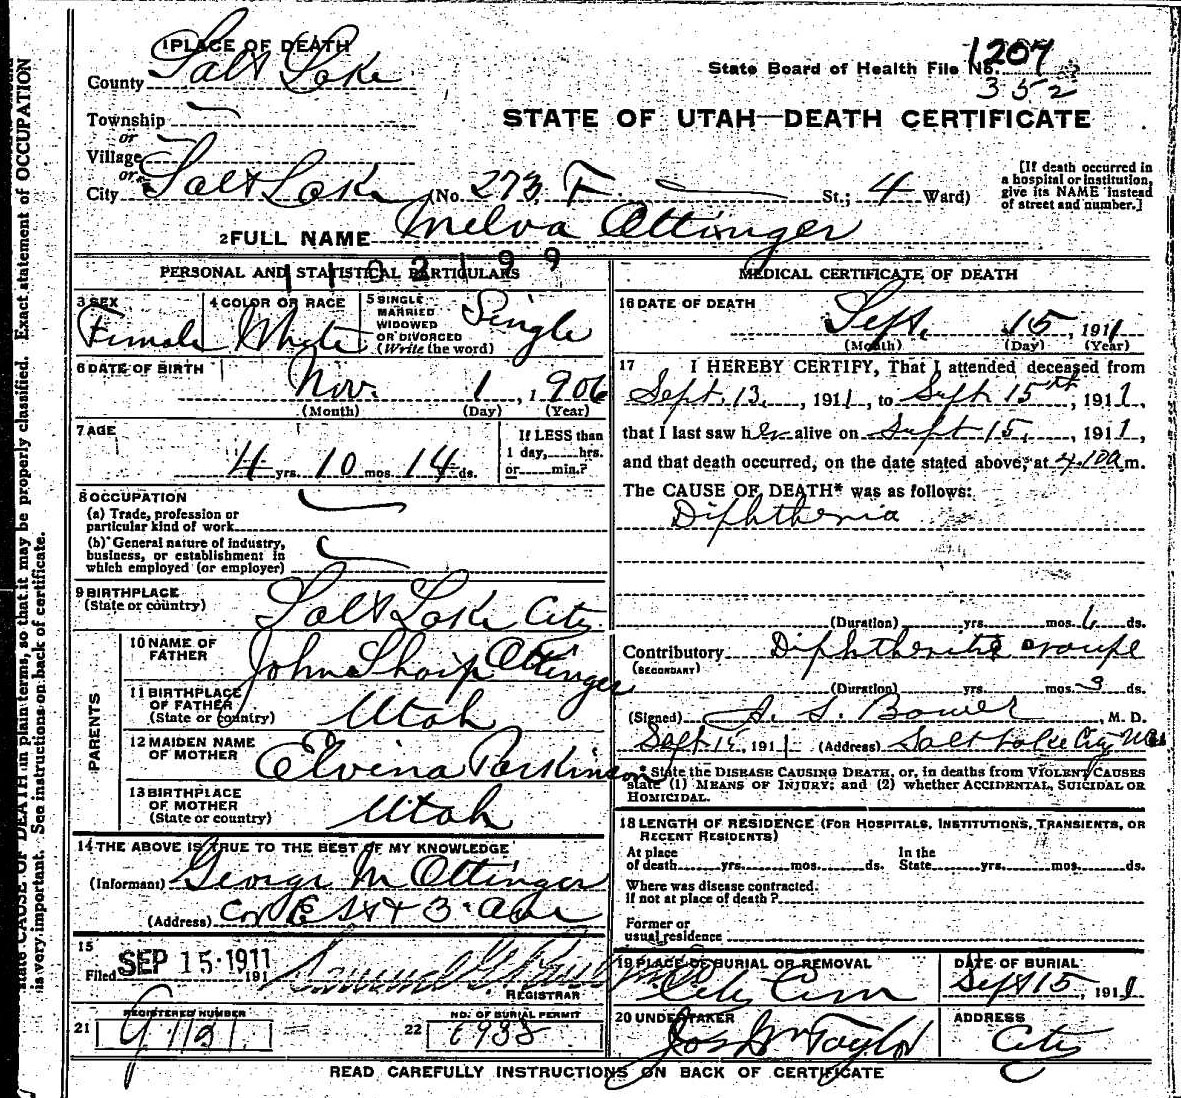 1 PLACE OF DEATH
County Salt Lake
State Board of Health File No. 1207
352
Township
or
Village
or
City Salt Lake (No. 273 F. St.; 4 Ward)
STATE OF UTAH—DEATH CERTIFICATE
[If death occurred in
a hospital or institution,
give its NAME instead
of street and number.]
2 FULL NAME Melva Ottinger
1102199
PERSONAL AND STATISTICAL PARTICULARS
3 SEX Female
4 COLOR OR RACE White
5 SINGLE
MARRIED
WIDOWED
OR DIVORCED
(Write the word) Single
6 DATE OF BIRTH Nov. 1, 1906
(Month) (Day) (Year)
7 AGE
4 yrs. 10 mos. 14 ds.
If LESS than
1 day, hrs.
or min.?
8 OCCUPATION
(a) Trade, profession or
particular kind of work
(b) General nature of industry,
business, or establishment in
which employed (or employer)
9 BIRTHPLACE
(State or country) Salt Lake City
PARENTS
10 NAME OF
FATHER John Sharp Ottinger
11 BIRTHPLACE
OF FATHER
(State or country) Utah
12 MAIDEN NAME
OF MOTHER Elvina Parkinson
13 BIRTHPLACE
OF MOTHER
(State or country) Utah
14 THE ABOVE IS TRUE TO THE BEST OF MY KNOWLEDGE
(Informant) George M Ottinger
(Address) Cor E St & 3 Ave
15
Filed SEP 15 1911 191
REGISTRAR
REGISTERED NUMBER
21
NO. OF BURIAL PERMIT
22 6933
MEDICAL CERTIFICATE OF DEATH
16 DATE OF DEATH
Sept. 15, 1911
(Month) (Day) (Year)
17 I HEREBY CERTIFY, That I attended deceased from
Sept. 13, 1911, to Sept. 15th, 1911,
that I last saw her alive on Sept 15, 1911,
and that death occurred, on the date stated above, at 4.10a m.
The CAUSE OF DEATH* was as follows:
Diphtheria
(Duration) yrs. mos. 6 ds.
Contributory Diphtheritic croupe
(SECONDARY)
(Duration) yrs. mos. 3 ds.
(Signed) A. S. Bower, M. D.
Sept 15, 1911 (Address) Salt Lake City
* State the DISEASE CAUSING DEATH, or, in deaths from VIOLENT CAUSES
state (1) MEANS OF INJURY; and (2) whether ACCIDENTAL, SUICIDAL OR
HOMICIDAL.
18 LENGTH OF RESIDENCE (FOR HOSPITALS, INSTITUTIONS, TRANSIENTS, OR
RECENT RESIDENTS)
At place
of death yrs. mos. ds.
In the
State yrs. mos. ds.
Where was disease contracted.
if not at place of death?
Former or
usual residence
19 PLACE OF BURIAL OR REMOVAL
City Cem
DATE OF BURIAL
Sept 15, 1911
20 UNDERTAKER
Jos Wm Taylor
ADDRESS
City
READ CAREFULLY INSTRUCTIONS ON BACK OF CERTIFICATE
state CAUSE OF DEATH in plain terms, so that it may be properly classified. Exact statement of OCCUPATION
is very important. See instructions on back of certificate.